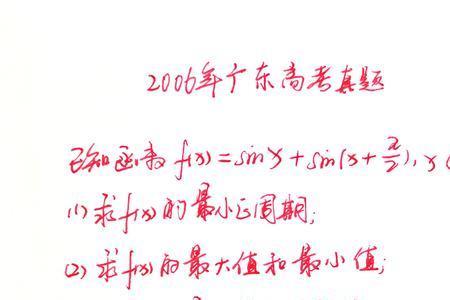 2006年广东高考真题
已知函数 f(x)=sinx+sin(x+π/2), x
(1) 求f(x)的最小正周期;
(2) 求f(x)的最大值和最小值;